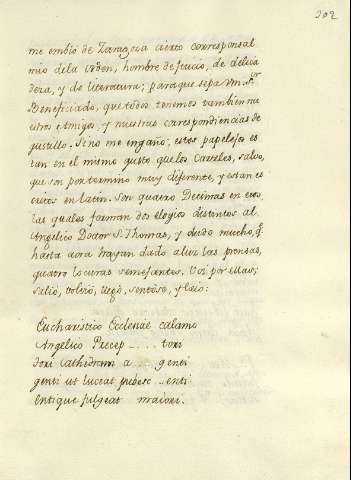 202
me embio de Zaragoza cierto corresponsal
mio de la orden, hombre de juicio, de delica
deza, y de literatura; para que sepa vm. Sr.
Beneficiado, que todos tenemos tambien nu
estros Amigos, y nuestras correspondiencias de
gustillo. Sino me engaño, estos papelejos es
tan en el mismo gusto que los Carteles, salvo,
que son por termino muy diferente, y estan es
critos en latin. Son quatro Decimas en ecos,
las quales forman dos elogios distintos al
Angelico Doctor S. Thomas, y dudo mucho, q
hasta aora hayan dado a luz las prensas,
quatro locuras semejantes. Voi por ellas;
salió, volvió, llegó, sentose, y leio:
Eucharistico Ecclesiae calamo
Angelico Precep . . . tori
tori Cathedram a . . . genti
genti ut lucrat pubesc . . enti
Entique fulgeat maiori.